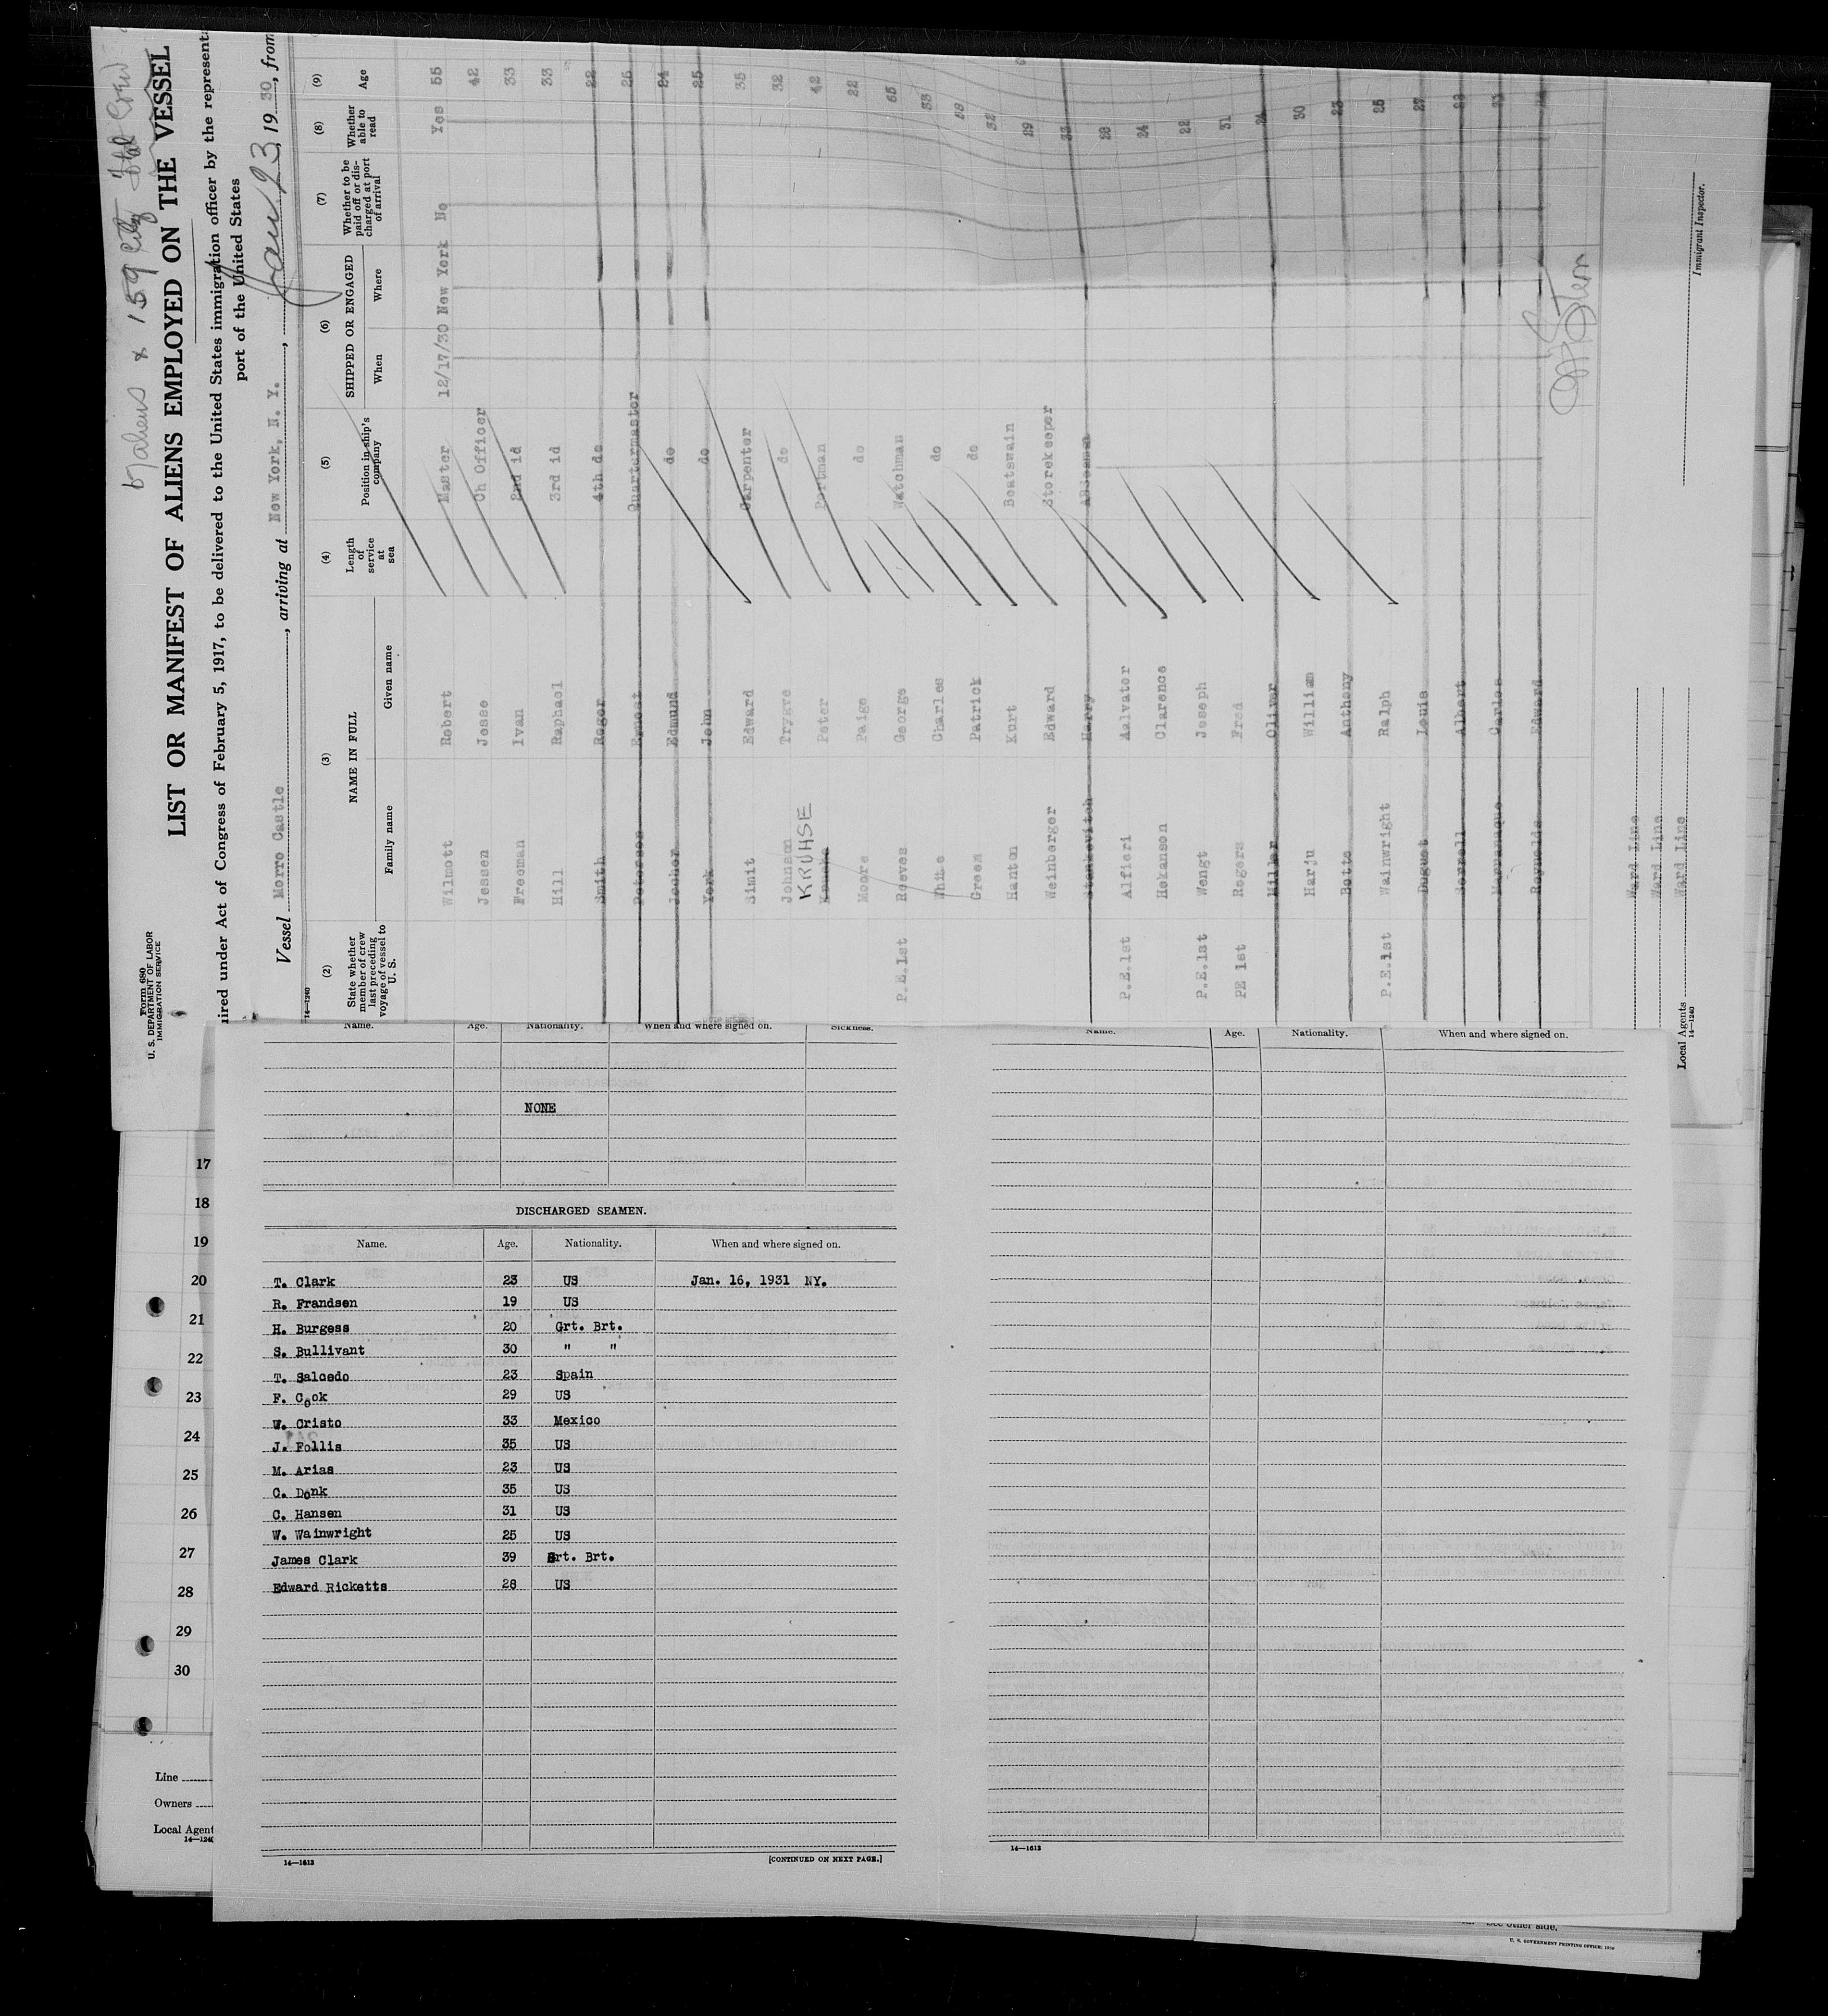 Form 680
U. S. DEPARTMENT OF LABOR
IMMIGRATION SERVICE
LIST OR MANIFEST OF ALIENS EMPLOYED ON THE VESSEL
ired under Act of Congress of February 5, 1917, to be delivered to the United States immigration officer by the representa
port of the United States
Vessel Morro Castle, arriving at New York, N. Y., Jan 23, 19 30, from
14—1240
(2) (3) (4) (5) (6) (7) (8) (9)
State whether member of crew last preceding voyage of vessel to U. S.
NAME IN FULL
Family name Given name
Length of service at sea
Position in ship's company
SHIPPED OR ENGAGED
When Where
Whether to be paid off or discharged at port of arrival
Whether able to read
Age
Wilmott Robert Master 12/17/30 New York No Yes 55
Jessen Jesse Ch Officer 42
Freeman Ivan 2nd id 33
Hill Raphael 3rd id 33
Smith Roger 4th do 22
Peterson Ernest Quartermaster 25
Edmund do 24
York John do 25
Simit Edward Carpenter 35
Johnson Trygve do 32
KRUHSE Peter 42
Moore Paige do 22
P.E.1st Reeves George Watchman 65
White Charles do 38
Green Patrick do
Hanton Kurt Boatswain
Weinberger Edward Storekeeper 29
Stankevitch Harry ABSeaman 33
P.E.1st Alfieri Aalvator 28
Hekanson Clarence 24
P.E.1st Wengt Joseph 22
PE 1st Rogers Fred 31
Miller Oliver 24
Harju William 30
Botto Anthony 23
P.E.1st Wainwright Ralph 25
Duguet Louis 27
Albert
Carlos
Reynolds Edward
Ward Line
Ward Line
Local Agents Ward Line
14—1240
Immigrant Inspector.
Name. Age. Nationality. When and where signed on. Sickness.
NONE
DISCHARGED SEAMEN.
Name. Age. Nationality. When and where signed on.
T. Clark 23 US Jan. 16, 1931 NY.
R. Frandsen 19 US
H. Burgess 20 Grt. Brt.
S. Bullivant 30 " "
T. Salcedo 23 Spain
F. Cook 29 US
W. Cristo 33 Mexico
J. Follis 35 US
M. Arias 23 US
C. Donk 35 US
C. Hansen 31 US
W. Wainwright 25 US
James Clark 39 Grt. Brt.
Edward Ricketts 28 US
14—1613
[CONTINUED ON NEXT PAGE.]
Name. Age. Nationality. When and where signed on.
14—1613
17
18
19
20
21
22
23
24
25
26
27
28
29
30
Line
Owners
Local Agent
14—124
See other side.
U. S. GOVERNMENT PRINTING OFFICE: